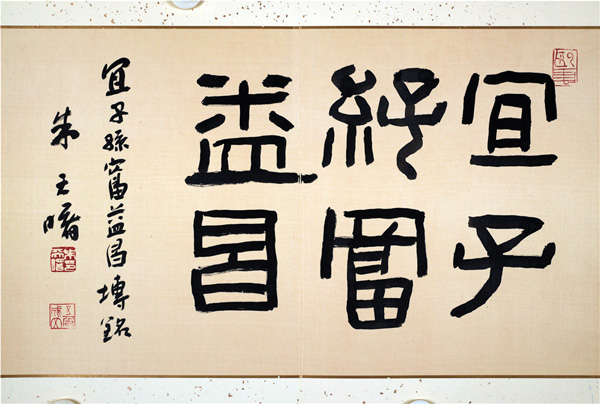 宜子
孫富
益昌
宜子孫富益昌塼銘
朱天曙